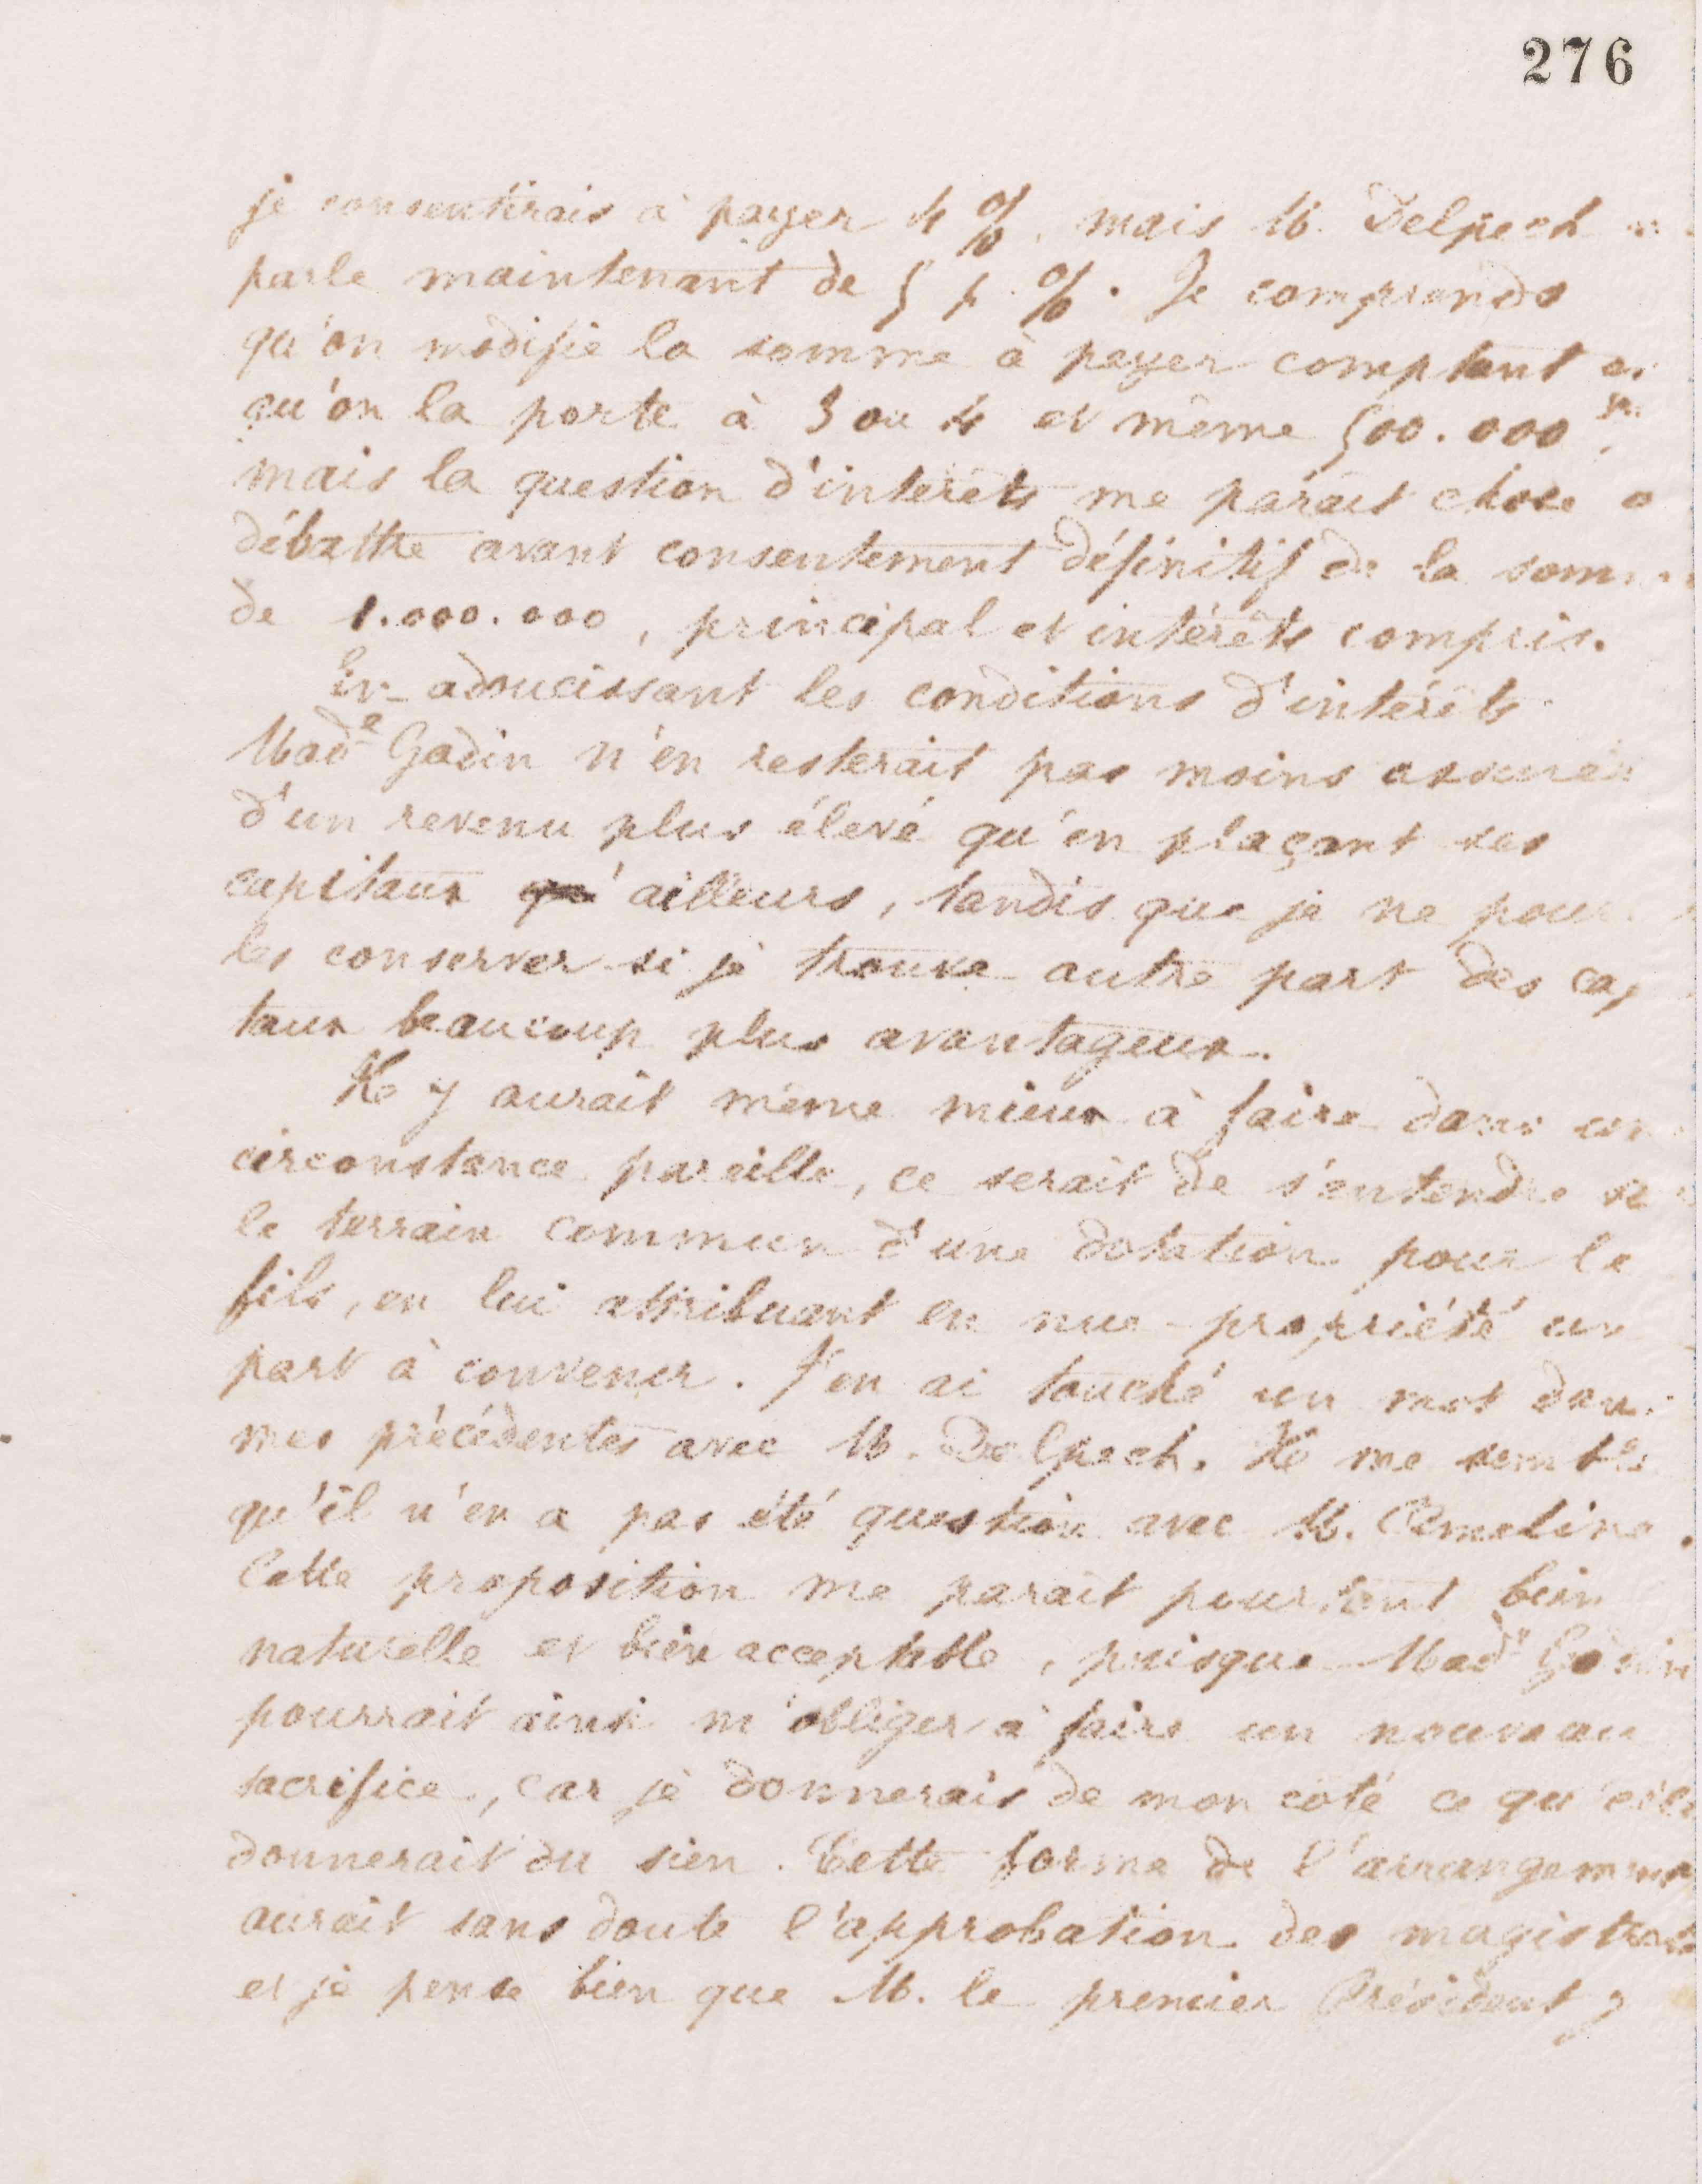 276
je consentirais à payer 4 %, mais M. Delpech
parle maintenant de 5 p. %. Je comprends
qu'on modifie la somme à payer comptant
qu'on la porte à 3 ou 4 et même 500.000 fr.
mais la question d'intérêts me paraît chose
débattre avant consentement définitif de la
de 1.000.000, principal et intérêts compris.
En adoucissant les conditions d'intérêts
Made Godin n'en resterait pas moins assurée
d'un revenu plus élevé qu'en plaçant ses
capitaux ailleurs, tandis que je ne
les conserver si je trouve autre part des
taux beaucoup plus avantageux.
Il y aurait même mieux à faire dans
circonstance pareille, ce serait de s'entendre
le terrain commun d'une dotation pour le
fils, en lui attribuant en nue-propriété
part à convenir. J'en ai touché un mot dans
mes précédentes avec M. Delpech. Il me semble
qu'il n'en a pas été question avec M.
Cette proposition me paraît pourtant bien
naturelle et bien acceptable, puisque Made Godin
pourrait ainsi m'obliger à faire un nouveau
sacrifice, car je donnerais de mon côté ce qu'elle
donnerait du sien. Cette forme de l'arrangement
aurait sans doute l'approbation des magistrats
et je pense bien que M. le premier Président y